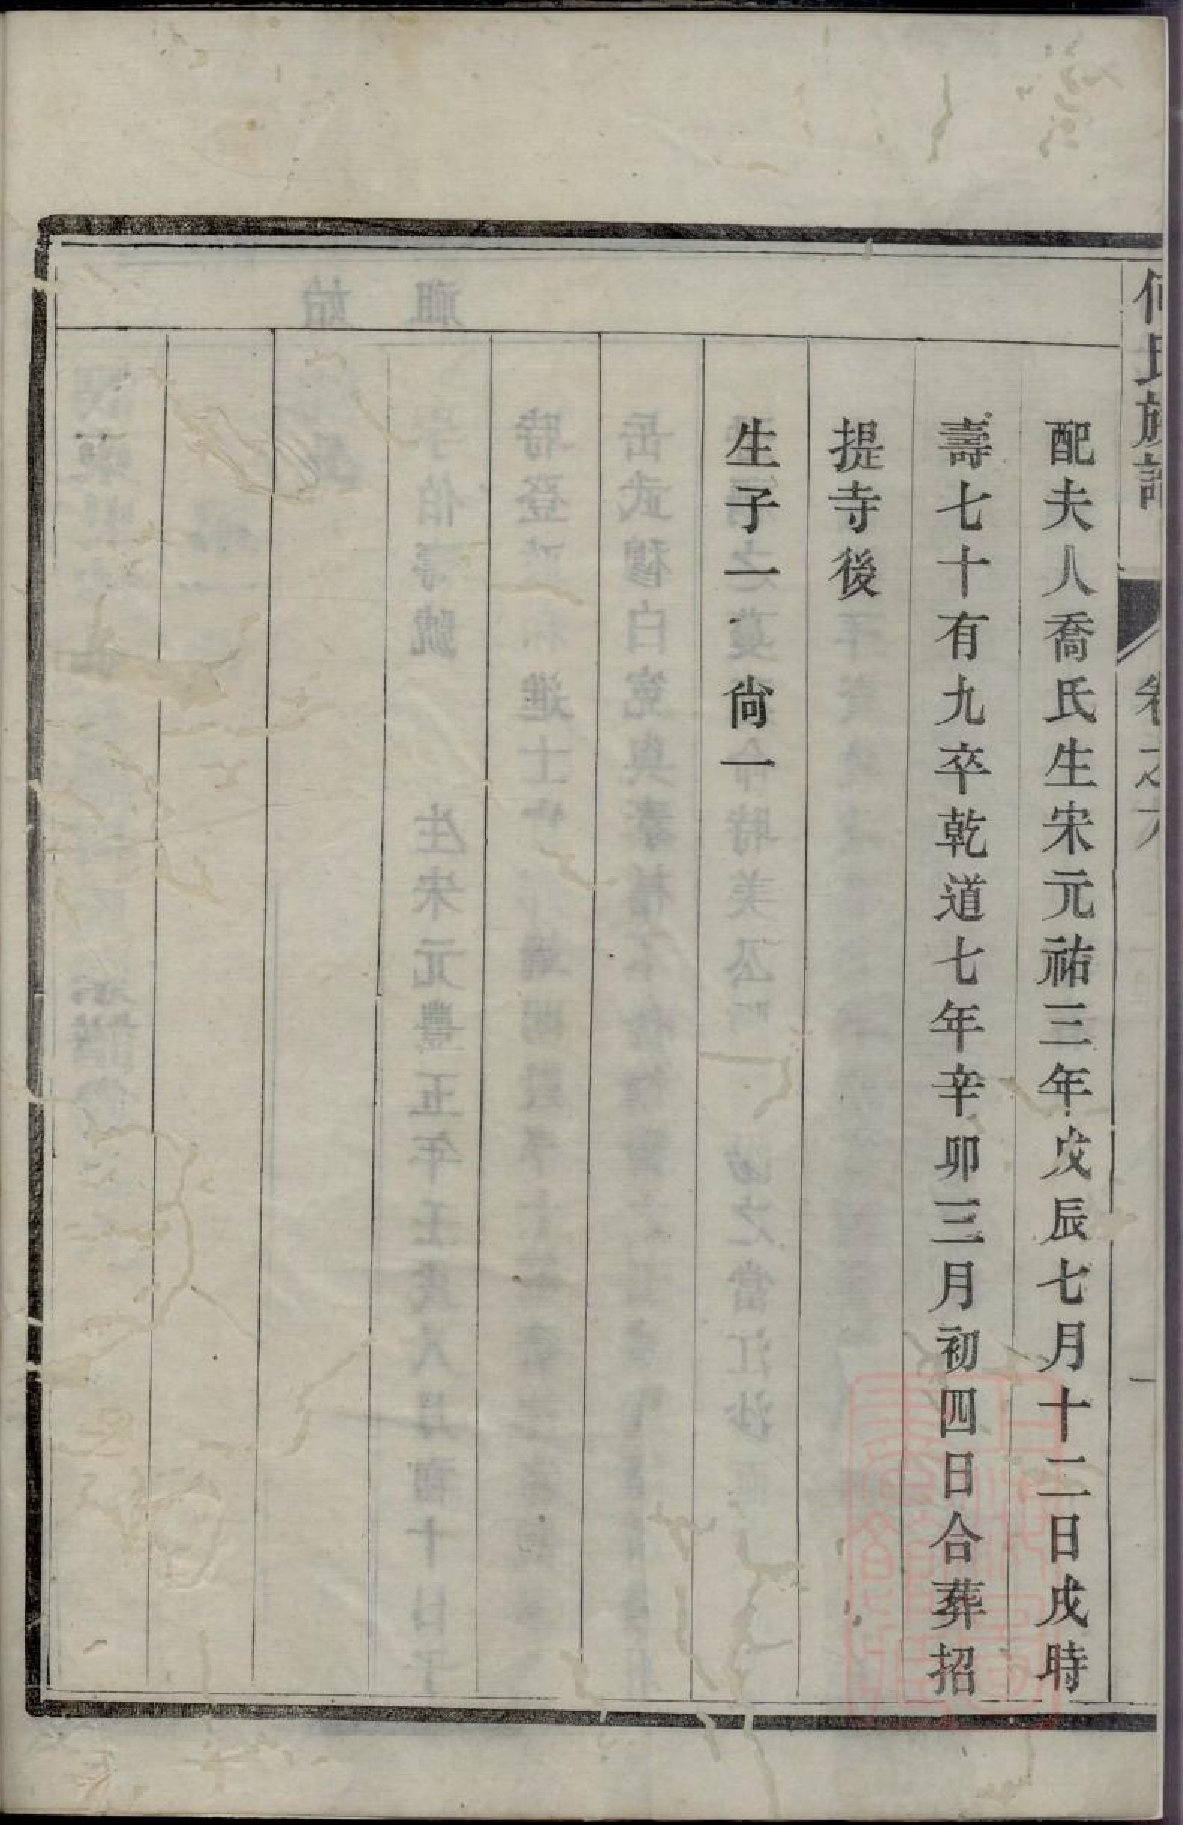 何氏族譜 卷之六 一
配夫人喬氏生宋元祐三年戊辰七月十二日戌時
壽七十有九卒乾道七年辛卯三月初四日合葬招
提寺後
生子一尙一